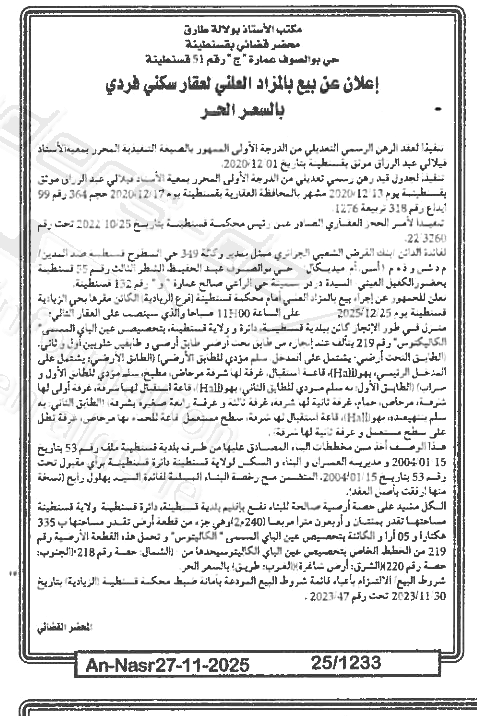 مكتب الأستاذ بولالة طارق
محضر قضائي بقسنطينة
حي بوالصوف عمارة "ج" رقم 51 قسنطينة
إعلان عن بيع بالمزاد العلني لعقار سكني فردي
بالسعر الحر
تنفيذا لعقد الرهن الرسمي التعديلي من الدرجة الأولى الممهور بالصيغة التنفيذية المحرر بمعية الأستاذ
فيلالي عبد الرزاق موثق بقسنطينة بتاريخ 2020/12/01.
تنفيذا لجدول قيد رهن رسمي تعديلي من الدرجة الأولى المحرر بمعية الأستاذ فيلالي عبد الرزاق موثق
بقسنطينة يوم 2020/12/13 مشهر بالمحافظة العقارية بقسنطينة يوم 2020/12/17 حجم 364 رقم 99
إيداع رقم 318 تربيعة 1276.
تنفيذا لأمر الحجز العقاري الصادر عن رئيس محكمة قسنطينة بتاريخ 2022/10/25 تحت رقم
22/3260
لفائدة الدائن /بنك القرض الشعبي الجزائري ممثل بمدير وكالة 349 حي السطوح قسنطينة ضد المدين/
حي بوالصوف عبد الحفيظ الشطر الثالث رقم 55 قسنطينة
بحضور الكفيل العيني السيدة حي الراعي صالح عمارة "و" رقم 132 قسنطينة.
يعلن للجمهور عن إجراء بيع بالمزاد العلني أمام محكمة قسنطينة (فرع الزيادية) الكائن مقرها بحي الزيادية
قسنطينة يوم 2025/12/25 على الساعة 11H00 صباحا والذي سينصب على العقار التالي:
منزل في طور الإنجاز كائن ببلدية قسنطينة، دائرة و ولاية قسنطينة، بتخصيص عين الباي المسمى "
الكاليتوس" رقم 219 يتألف عند إنجازه من طابق تحت أرضي طابق أرضي و طابقين علويين أول و ثاني.
(الطابق التحت أرضي: يشتمل على /مدخل سلم مؤدي للطابق الأرضي) (الطابق الأرضي: يشتمل على
المدخل الرئيسي، بهو(Hall)، قاعة استقبال، غرفة لها شرفة مرحاض، مطبخ، سلم مؤدي للطابق الأول و
(الطابق الأول: به سلم مودي للطابق الثاني، بهو(Hall)، قاعة استقبال لها شرفة، غرفة أولى لها
شرفة، مرحاض، حمام، غرفة ثانية لها شرفة، غرفة ثالثة و غرفة رابعة صغيرة بشرفة) (الطابق الثاني: به
سلم بهو(Hall)، قاعة استقبال لها شرفة، سطح مستعمل قاعة للحمام بها مرحاض، غرفة تطل
على سطح مستعمل و غرفة ثانية لها شرفة).
هذا الوصف أخذ من مخططات البناء المصادق عليها من طرف بلدية قسنطينة ملف رقم 53 بتاريخ
2004/01/15 و مديرية العمران و البناء و السكن لولاية قسنطينة دائرة قسنطينة برأي مقبول تحت
رقم 53 بتاريخ 2004/01/15، المتضمن منح رخصة البناء المسلمة لفائدة السيد بهلول رابح (نسخة
منها أرفقت بأصل العقد).
الكل مشيد على حصة أرضية صالحة للبناء تقع بإقليم بلدية قسنطينة، دائرة قسنطينة ولاية قسنطينة
مساحتها تقدر بمئتان و أربعون مترا مربعا (240م2) وهي جزء من قطعة أرض تقدر مساحتها ب 335
هكتارا و 05 أرا و الكائنة بتخصيص عين الباي المسمى " الكاليتوس" و تحمل هذه القطعة الأرضية رقم
219 من المخطط الخاص بتخصيص عين الباي الكاليتوس يحدها من (الشمال: حصة رقم 218)(الجنوب:
حصة رقم 220)(الشرق: أرض شاغرة)(الغرب: طريق) بالسعر الحر
شروط البيع/ الالتزام بأعباء قائمة شروط البيع المودعة بأمانة ضبط محكمة قسنطينة (الزيادية) بتاريخ
2023/11/30 تحت رقم 2023/47.
المحضر القضائي
An-Nasr27-11-2025
25/1233